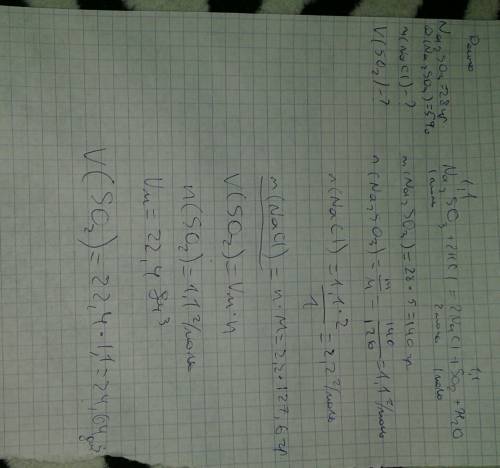 Дано
Na₂SO₃ = 28 гр
ω(Na₂SO₃) = 5%
m(NaCl) - ?
V(SO₂) - ?
1,1 1,1
Na₂SO₃ + 2HCl = 2NaCl + SO₂ + H₂O
1 моль 2 моль 1 моль
m(Na₂SO₃) = 28 · 5 = 140 гр
n(Na₂SO₃) = m/M = 140/126 = 1,1 г/моль
n(NaCl) = 1,1 · 2 / 1 = 2,2 г/моль
m(NaCl) = n · M = 2,2 · 127,6 гр
V(SO₂) = Vm · n
n(SO₂) = 1,1 г/моль
Vm = 22,4 дм³
V(SO₂) = 22,4 · 1,1 = 24,64 дм³